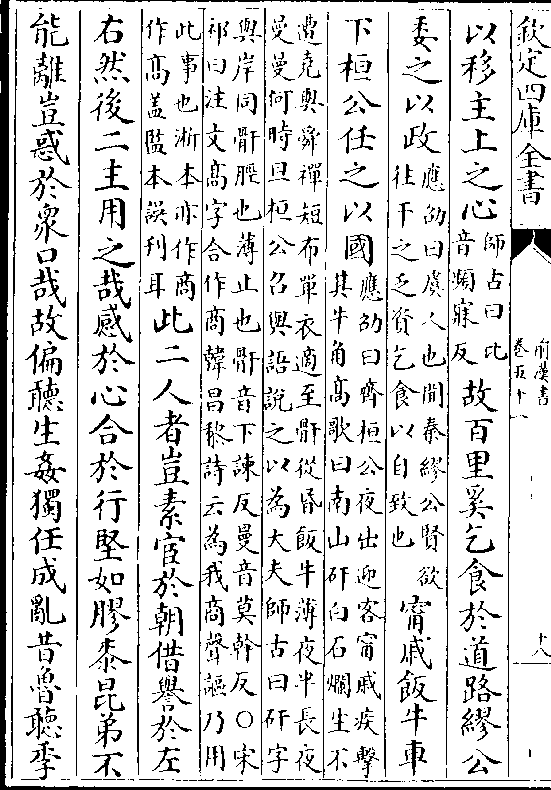 欽定四庫全書
前漢書
卷五十一
十八
以移主上之心
師古曰此
音頻寐反
故百里奚乞食於道路繆公
委之以政
應劭曰虞人也聞秦繆公賢欲
往干之乏資乞食以自致也
甯戚飯牛車
下桓公任之以國
應劭曰齊桓公夜出迎客甯戚疾擊
其牛角髙歌曰南山矸白石爛生不
遭堯與舜禪短布單衣適至骭從昏飯牛薄夜半長夜
曼曼何時旦桓公召與語説之以為大夫師古曰矸字
與岸同骭脛也薄止也骭音下諫反曼音莫幹反○宋
祁曰注文髙字合作商韓昌黎詩云為我商聲謳乃用
此事也淅本亦作商
作髙盖監本誤刋耳
此二人者豈素宦於朝借譽於左
右然後二主用之哉感於心合於行堅如膠桼昆弟不
能離豈惑於衆口哉故偏聽生姦獨任成亂昔魯聽季